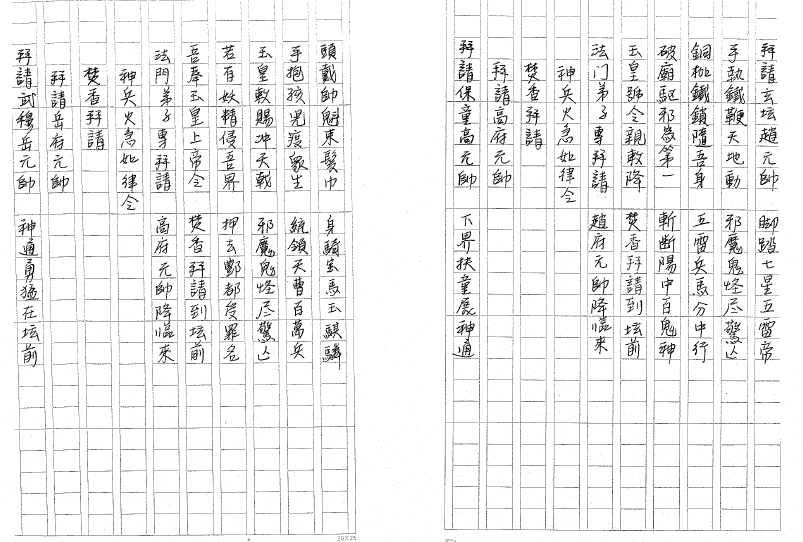 拜請玄坛趙元帥 脚踏七星五雷帝
手執鐵鞭天地動 邪魔鬼怪尽驚亾
銅枷鐵鎖隨吾身 五雷兵馬分中行
破廟駆邪為第一 斬断陽中百鬼神
玉皇詔令親敕降 焚香拜請到坛前
法门弟子專拜請 趙府元帥降臨來
神兵火急如律令
焚香拜請
拜請高府元帥
拜請保童高元帥 下界扶童展神通
頭戴帥魁束髮巾 身騎宝馬玉麒麟
手抱孩児度衆生 統領天曹百萬兵
玉皇敕賜冲天戟 邪魔鬼怪尽驚亾
若有妖精侵吾界 押去酆都定罪名
吾奉玉皇上帝令 焚香拜請到坛前
法門弟子專拜請 高府元帥降臨來
神兵火急如律令
焚香拜請
拜請岳府元帥
拜請武穆岳元帥 神通勇猛在坛前
20X25